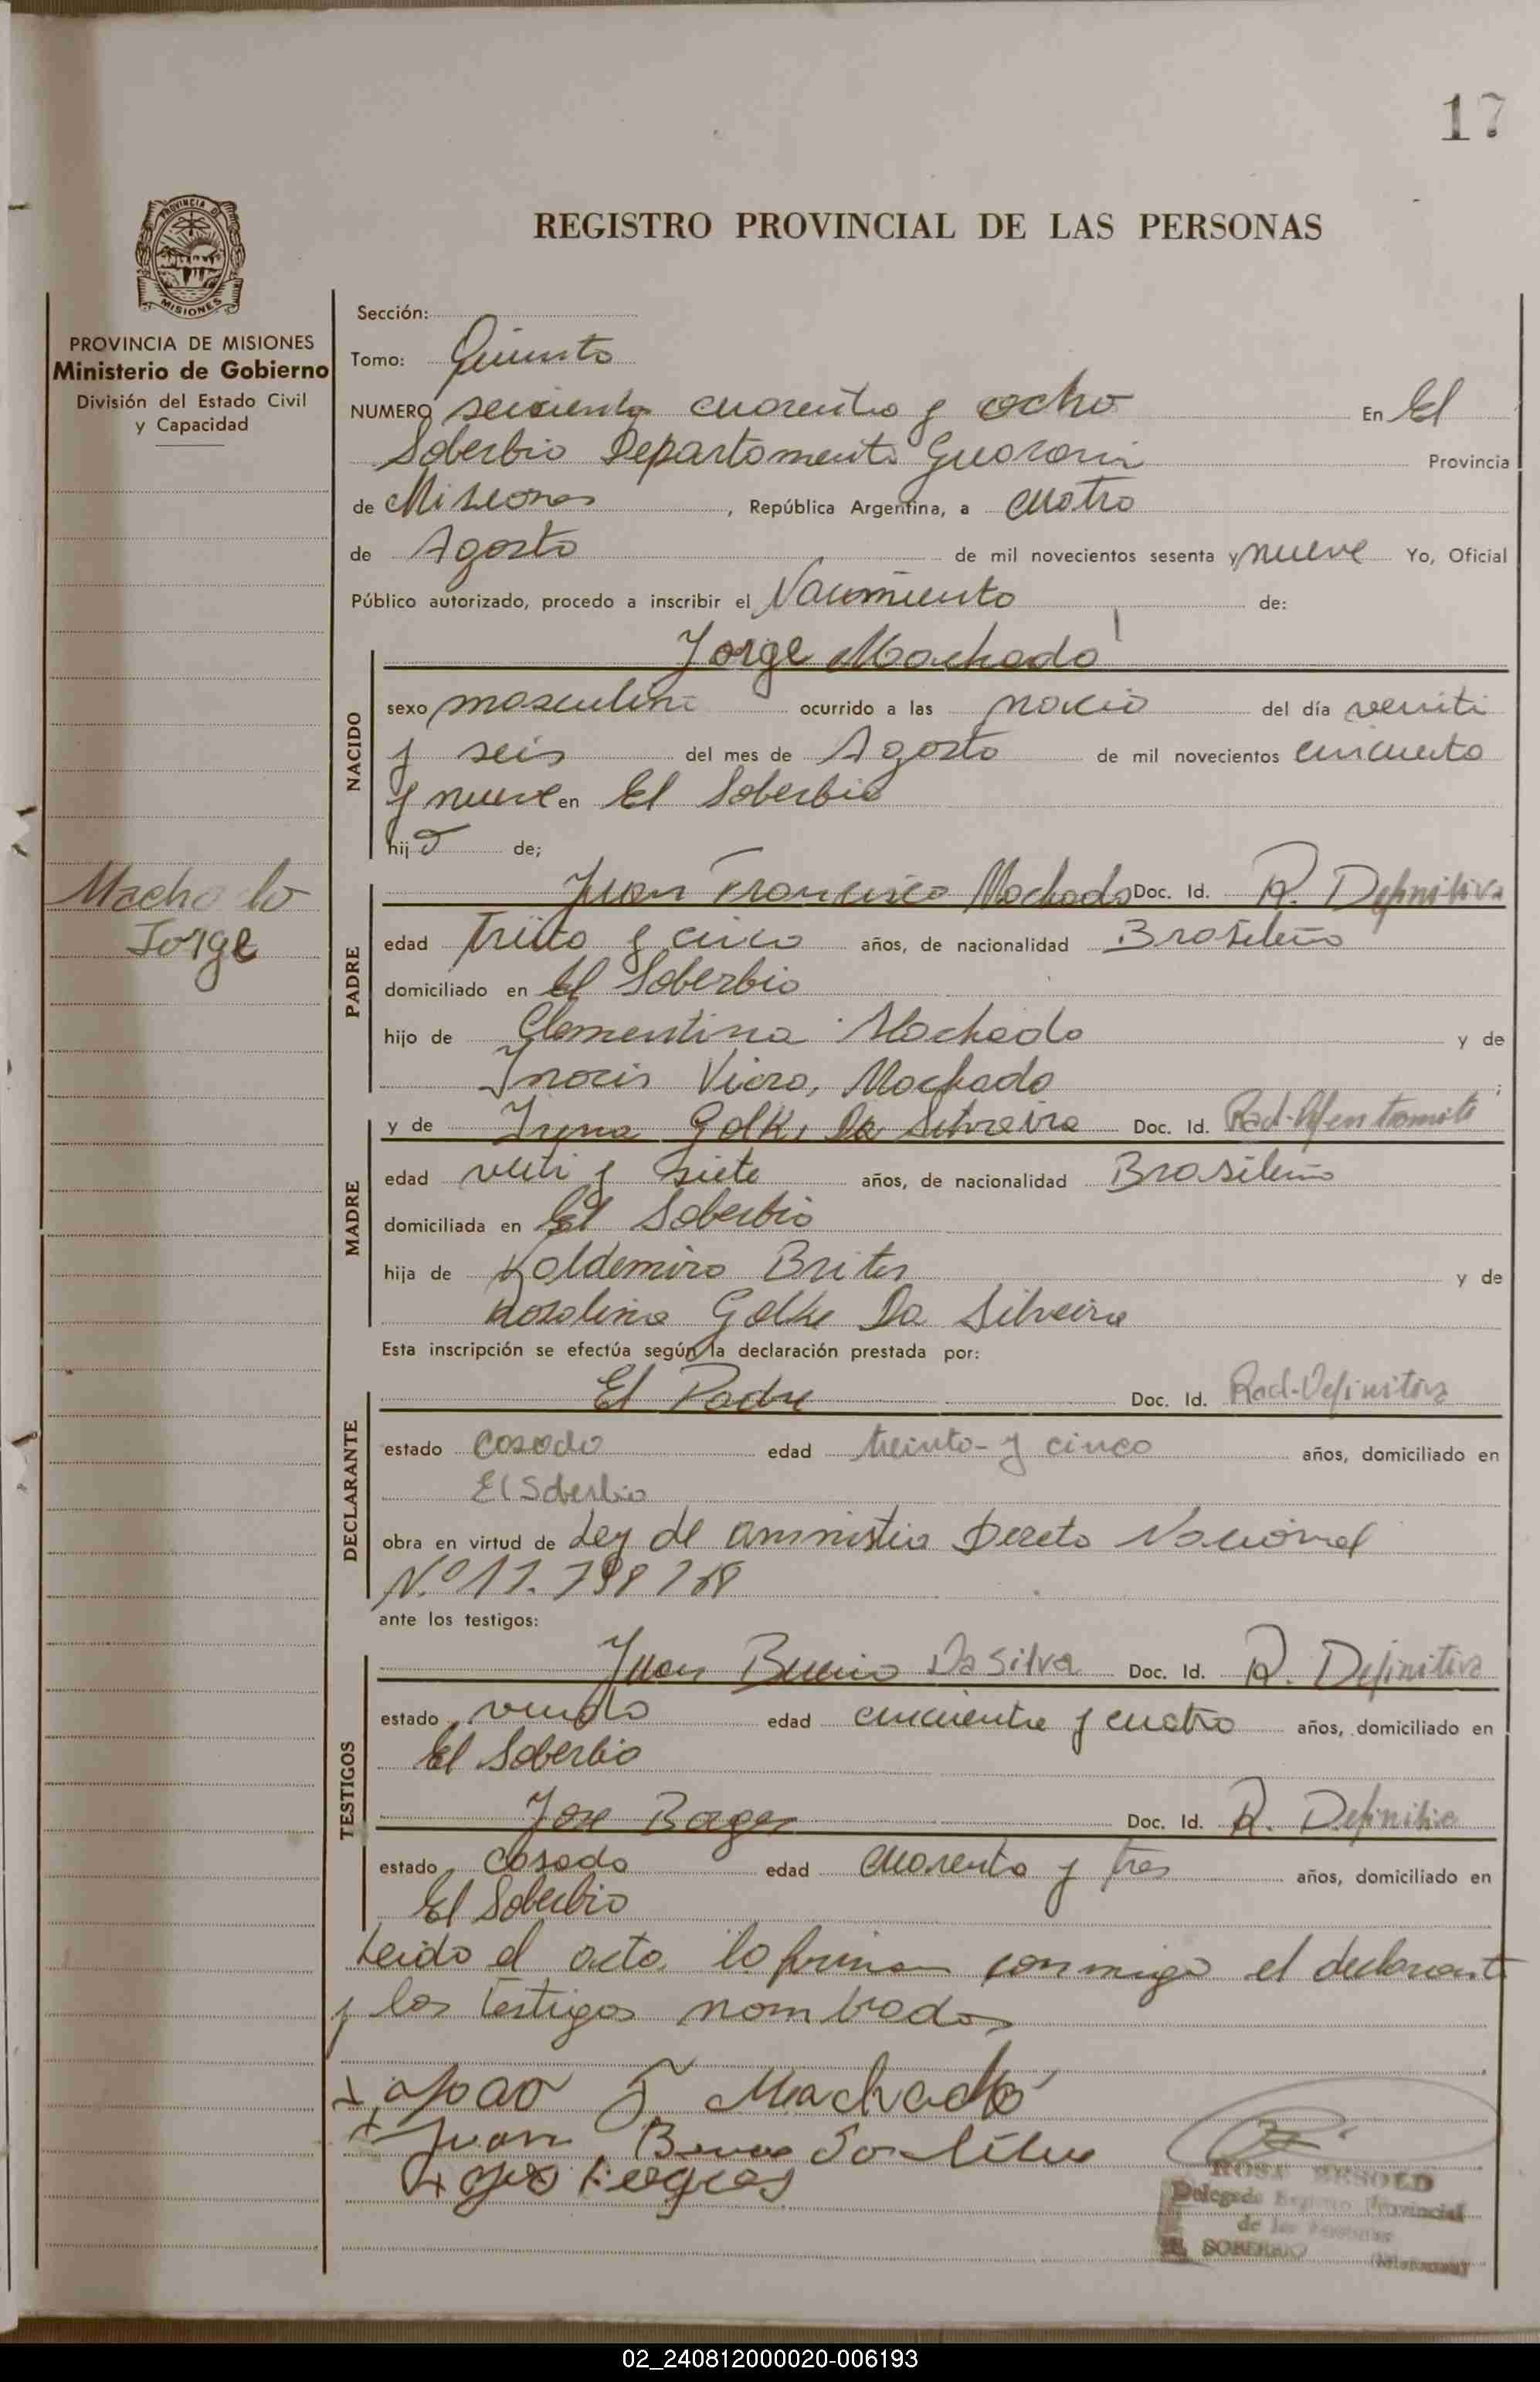 17
PROVINCIA DE
MISIONES
REGISTRO PROVINCIAL DE LAS PERSONAS
PROVINCIA DE MISIONES
Ministerio de Gobierno
División del Estado Civil
y Capacidad
Sección:
Tomo: Quinto
NUMERO seiciento cuarenta y ocho En El
Soberbio Departamento Guarani Provincia
de Misiones, República Argentina, a cuatro
de Agosto de mil novecientos sesenta y nueve Yo, Oficial
Público autorizado, procedo a inscribir el Nacimiento de:
Jorge Machado
NACIDO
sexo masculino ocurrido a las nació del día veinti
y seis del mes de Agosto de mil novecientos cincuenta
y nueve en El Soberbio
hijo de;
Machado
Jorge
PADRE
Juan Francisco Machado Doc. Id. R. Definitiva
edad treita y cinco años, de nacionalidad Brasileño
domiciliado en El Soberbio
hijo de Clementina Machado y de
Viera, Machado
MADRE
y de Golk, Da Silveira Doc. Id.
edad veiti y siete años, de nacionalidad Brasileño
domiciliada en El Soberbio
hija de Valdemiro Brites y de
Rosolina Golke Da Silveira
Esta inscripción se efectúa según la declaración prestada por:
DECLARANTE
El Padre Doc. Id. Rad-Definitiva
estado casado edad treinta-y cinco años, domiciliado en
El Soberbio
obra en virtud de Ley de amnistia Decreto Nacional
Nº
ante los testigos:
TESTIGOS
Juan Bueno Da Silva Doc. Id. R. Definitiva
estado viudo edad cincuenta y cuatro años, domiciliado en
El Soberbio
Jose Borges Doc. Id. R. Definitiva
estado casado edad cuarenta y tres años, domiciliado en
El Soberbio
Leido el acta la firman conmigo el declarante
y los testigos nombrados
Joao F Machado
Juan Bueno Da Silva
ROSA
Delegada Registro Provincial
de las Personas
EL SOBERBIO (Misiones)
02_240812000020-006193